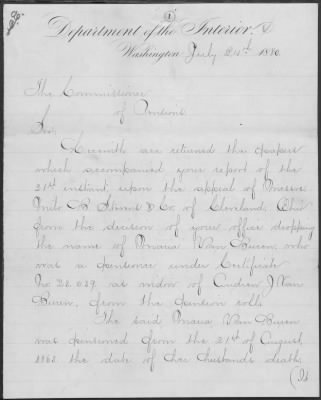 Department of the Interior,
Washington July 24th 1880.
The Commissioner
of Pensions
Sir:
Herewith are returned the papers
which accompanied your report of the
21st instant, upon the appeal of Messrs
Milo B. Stevens & Co. of Cleveland, Ohio
from the decision of your office dropping
the name of Maria Van Buren, who
was a pensioner under Certificate
No. 28.029, as widow of Andrew J. Van
Buren, from the pension rolls.
The said Maria Van Buren
was pensioned from the 21st of August,
1863 the date of her husbands death.